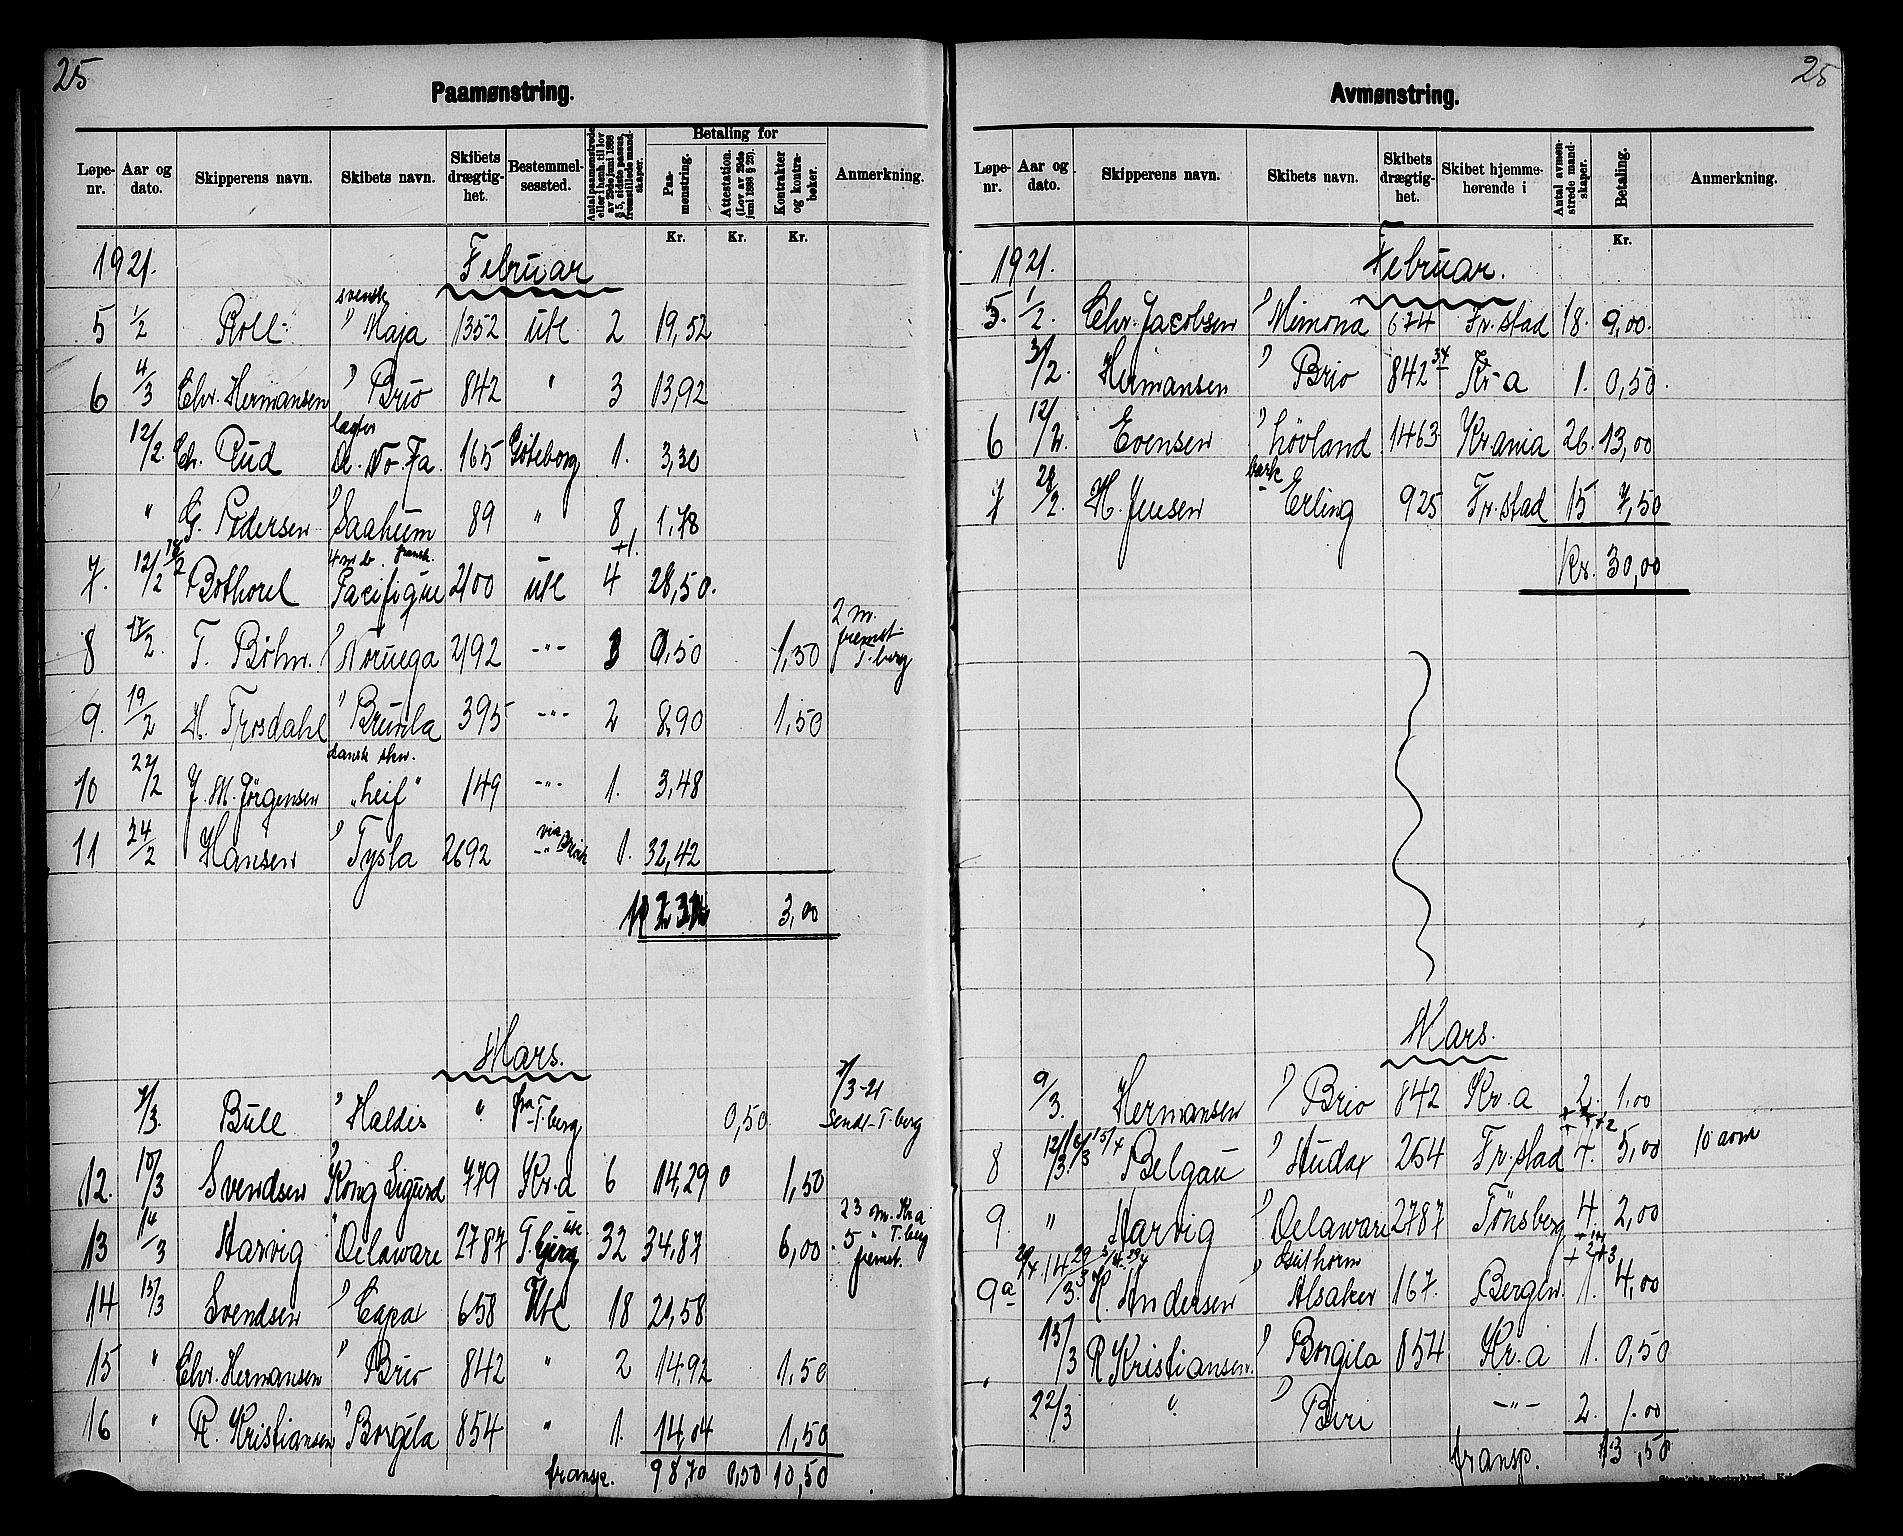 25
Paamønstring.
Løpe-nr. Aar og dato. Skipperens navn. Skibets navn. Skibets drægtig-het. Bestemmel-sessted. Antal paamønstrede eller i henh. til lov av 29de juni 1888 § 5, sidste passus, fremstillede mand-skaper. Betaling for Paa-mønstring. Attestation. (Lov av 29de juni 1888 § 23). Kontrakter og kontra-bøker. Anmerkning.
Kr. Kr. Kr.
1921. Februar
5 1/2 Roll svensk " Maja 1352 utl 2 19,52
6 4/3 Chr. Hermansen " Brio 842 " 3 13,92
12/2. Ch. Rud lagter Dl. No. Fa. 165 Göteborg 1. 3,30
" G. Pedersen Saahum 89 " 8 1,78
7. 12/2 18/2 Bothorel 4 m b. fransk. Pacifique 2100 utl 4 +1. 28,50.
8 17/2. T. Böhn. " Noruega 2192 -"- 3 0,50 1,50 2 m. fremst. T.berg
9. 19/2 H. Trosdahl " Brumla 395 -"- 2 8,90 1,50
10 22/2 J. M. Jörgensen dansk skr. "Leif" 149 -"- 1. 3,48
11 24/2 Hansen " Tysla 2692 via -"- 1. 32,42
3,00
Mars.
7/3. Bull " Haldis " fra T.berg 0,50. 7/3-21 Sendt T.berg
12. 10/3 Svendsen Kong Sigurd 779 Kr.a 6 14,29 0 1,50
13 14/3 Harvig " Delaware 2787 T.bjerg utl 32 34,87 6,00 23 m. Kr.a 5 " T.berg fremst.
14 15/3 Svendsen " Capax 658 Utl 18 21,58
15 " Chr. Hermansen " Brio 842 " 2 14,92 1,50
16 " R. Kristiansen " Borgila 854 " 1. 14,04 1,50
transp. 98,70 0,50 10,50
25
Avmønstring.
Løpe-nr. Aar og dato. Skipperens navn. Skibets navn. Skibets drægtig-het. Skibet hjemme-hørende i Antal avmøn-strede mand-skaper. Betaling. Anmerkning.
Kr.
1921. Februar.
5. 1/2. Chr. Jacobsen " Mimona 674 Fr.stad 18. 9,00.
3/2. Hermansen " Brio 842 Kr-a 1. 0,50.
6 12/2. Evensen " Lövland 1463 Kr.ania 26. 13,00
7 28/2. H. Jensen bark Erling 925 Fr.stad 15 7,50
Kr. 30,00
Mars.
9/3. Hermansen " Brio 842 Kr.a 2. 1,00
8 12/3. 15/4 Belgau " Audax 254 Fr.stad 7. 5,00 10 avm
9. " Harvig " Delaware 2787 Tönsberg 4 2,00
9a 14/3. H. Andersen " Alsaker 167. Bergen 1. 4,00
15/3 R Kristiansen. " Borgila 854 Kr.a 1. 0,50
22/3 " " Biri -"- 2. 1.00
transp. 13,50